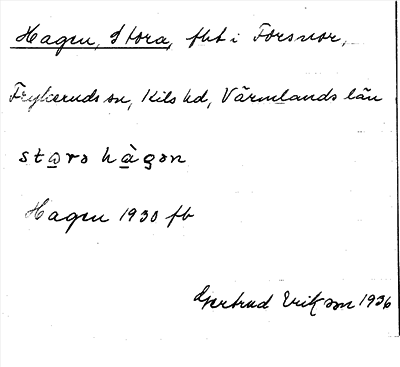 Hagen, Stora, fht i Forsnor,
Frykeruds sn, Kils hd, Värmlands län
stɷrə hàgən
Hagen 1930 fb
Gertrud Erikson 1936